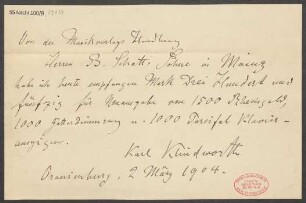 Von der Musikverlags Handlung
Herren B. Schott Söhne in Mainz
habe ich heute empfangen Mark Drei Hundert und
fünfzig für Neuausgabe von 1500 Rheingold,
1000 Götterdämmerung u. 1000 Parsifal Klavier-
auszügen.
Karl Klindworth
Oranienburg, 2 März 1904.